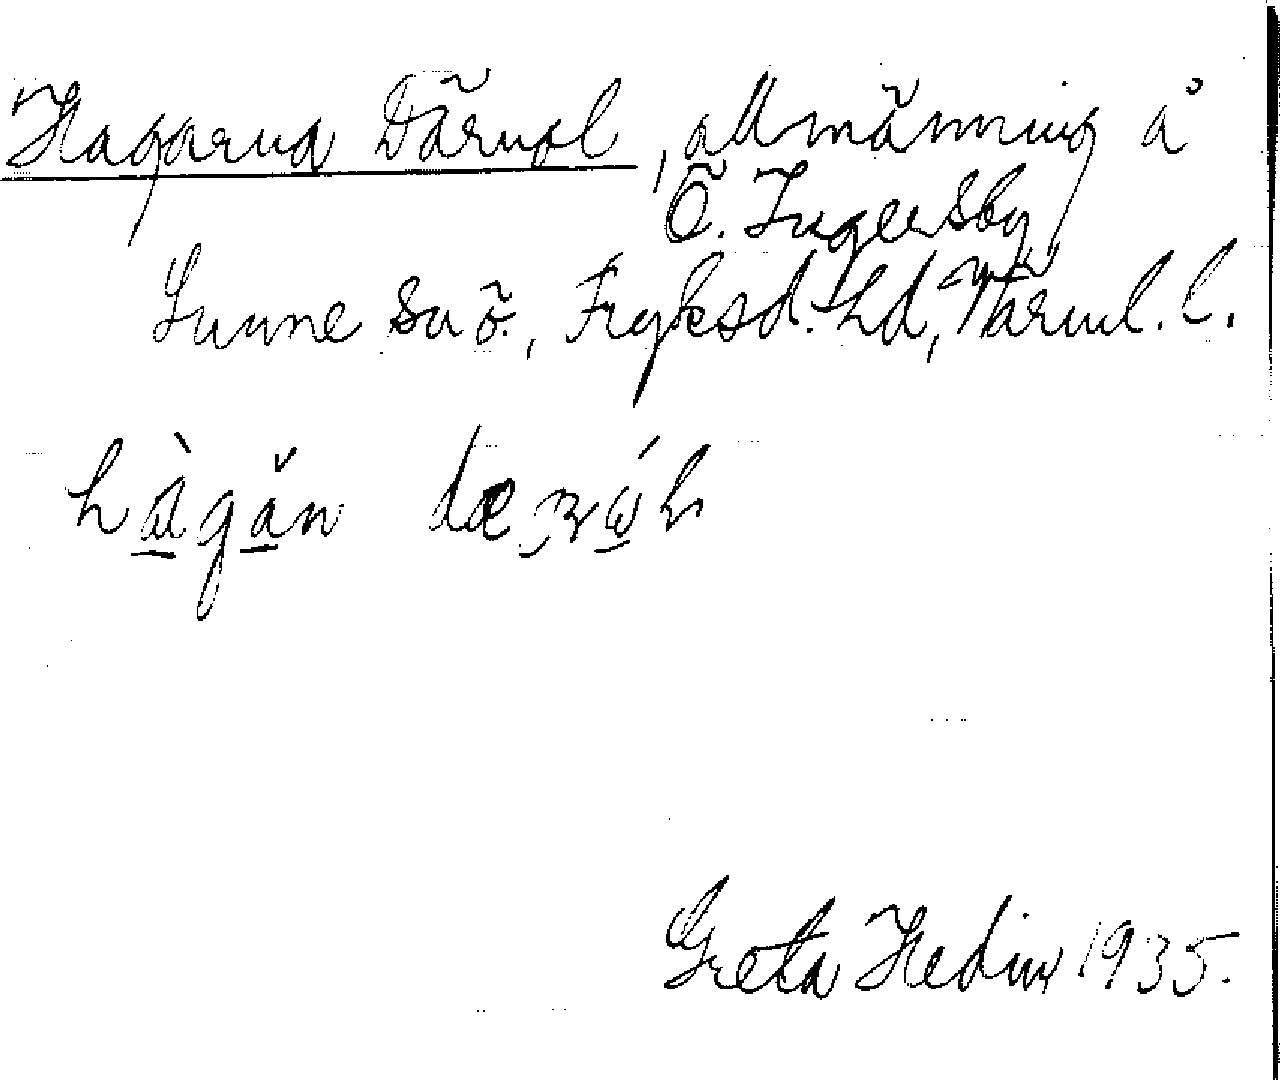 Hagarna Därnol, allmänning å
Ö. Ingersby
Sunne sn ö., Fryksd. hd, Värml. l.
hàgăn
Greta Hedin 1935.